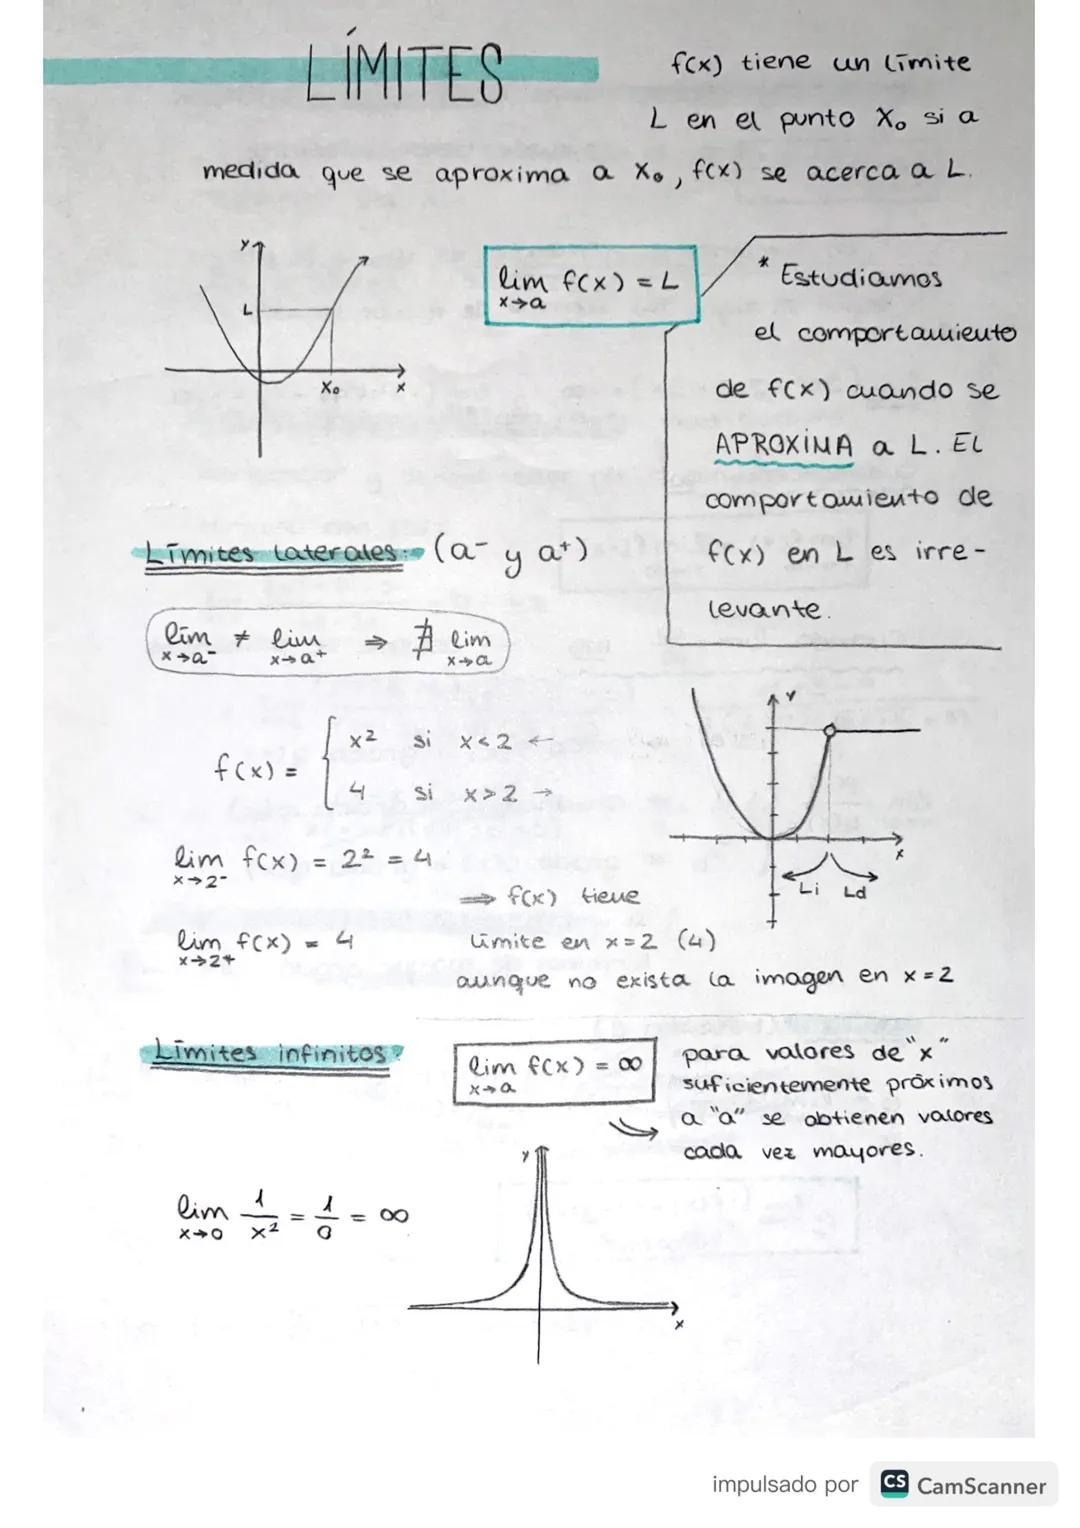 LÍMITES
f(x) tiene un límite
L en el punto X₀ si a
medida que se aproxima a X₀, f(x) se acerca a L.
y
L
X₀
x
lim f(x) = L
x→a
* Estudiamos
el comportamiento
de f(x) cuando se
APROXIMA a L. El
comportamiento de
f(x) en L es irre-
levante.
Límites laterales: (a⁻ y a⁺)
lím ≠ lim ⇒ ∄ lim
x→a⁻ x→a⁺ x→a
f(x) = { x² si x<2 ←
4 si x>2 →
y
x
Li Ld
lim f(x) = 2² = 4
x→2⁻
⇒ f(x) tiene
lim f(x) = 4
x→2⁺
límite en x=2 (4)
aunque no exista la imagen en x=2
Límites infinitos:
lim f(x) = ∞
x→a
para valores de "x"
suficientemente próximos
a "a" se obtienen valores
cada vez mayores.
lim 1/x² = 1/0 = ∞
x→0
y
x
impulsado por CS CamScanner